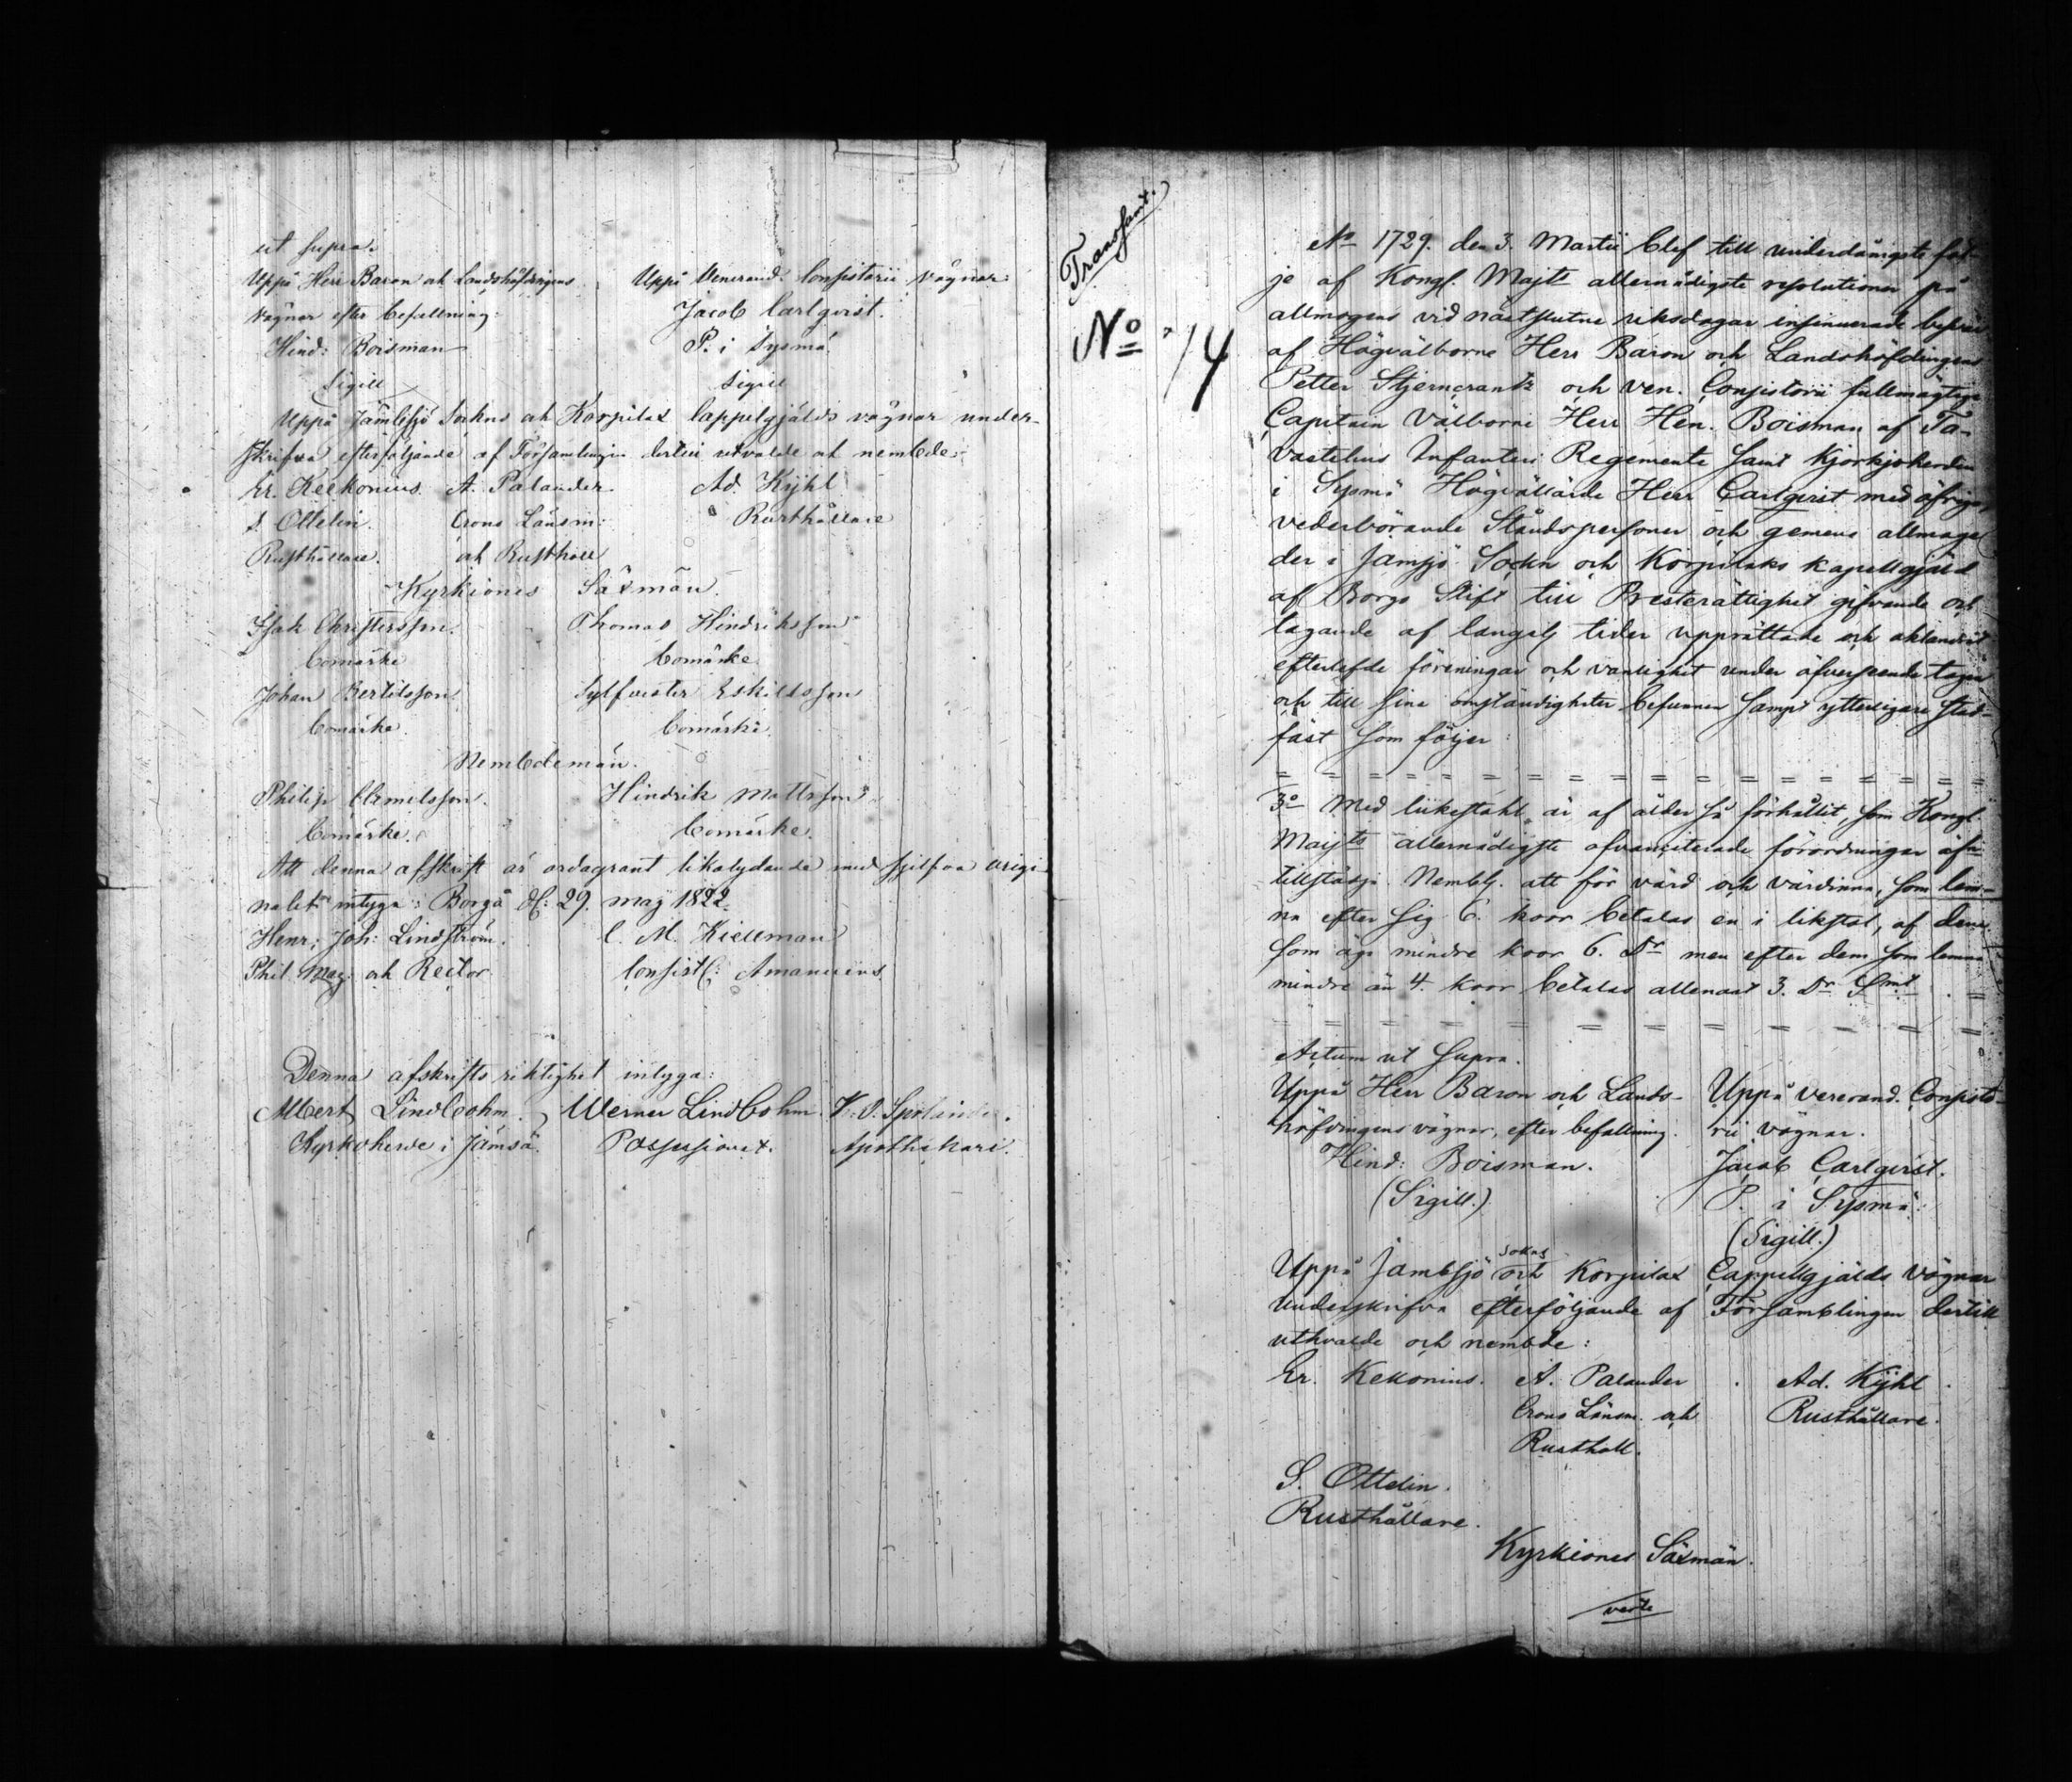 ut supra.
Uppå Herr Baron och Landshöfdingens Uppå Venerand. Consistorii vägnar:
vägnar efter befallning: Jacob Carlqvist.
Hind: Boisman P. i Sysmä
Sigill Sigill
Uppå Jämbsjö Sockns och Korpilax Cappelgjälds vägnar under-
skrifva efterföljande af Församlingen dertill utvalde och nembde:
Er. Keckonius. A. Palander Ad. Kyhl
S. Ottelin. Crono Länsm: Rusthållare
Rusthållare. och Rusthåll
Kyrkiones Säxmän.
Isak Christersson. Thomas Hindriksson
bomärke bomärke
Johan Bertilsson Sylfvester Eskilsson
bomärke bomärke
Nembdemän.
Philip Clemetsson. Hindrik Mattsson
bomärke. bomärke.
Att denna afskrift är ordagrant likalydande med sjelfva origi-
nalet intyga: Borgå d: 29. maj 1822.
Henr: Joh: Lindström. C. M. Kiellman
Phil. Mag. och Rector. Consist: Amanuens
Denna afskrifts riktighet intyga:
Albert Lindbohm. Werner Lindbohm.
Kyrkoherde i Jämsä. Possessionat. Apothekare.
Transsumt.
No 14
No 1729. den 3. Martii blef till underdånigste föl-
je af Kongl. Majts allernådigste resolutioner på
allmogens vid nästslutne riksdagar insinuerade besvär
af Högvälborne Herr Baron och Landshöfdingens
Petter Stjerncrantz och Ven. Consistorii fullmägtige
Capitain Välborne Herr Hen. Boisman af Ta-
vastehus Infanteri Regemente samt Kjörkjoherden
i Sysmä Högvällärde Herr Carlqvist med öfrige
vederbörande Ståndspersoner och gemene allmoge
der i Jämsjö Sockn och Korpilaks kapellgjäld
af Borgo Stift till Presterättighet gifvande och
tagande af langelg tider upprättade och
efterlefde föreningar och vanlighet under öfverseende tagen
och till sine omständigheter befunnen sampt ytterligare stad-
fäst som följer:
3o Med likestohl är af ålder så förhållit, som Kongl
Maijts allernådigste ofvanciterade förordningar äfv.
tillstädja. Nembl. att för värd och värdinna, som lem-
na efter sig 6. koor betalas en i likstol, af dem
som äga mindre koor 6. Dr men efter dem som lemna
mindre än 4. koor betalas allenast 3. Dr Smt
Actum ut Supra.
Uppå Herr Baron och Lands- Uppå Venerand. Consisto-
höfdingens vägnar, efter befallning. rii vägnar.
Hind: Boisman. Jacob Carlqvist.
(Sigill.) P. i Sysmä:
(Sigill.)
Uppå Jämbsjö sokns och Korpilax Cappellgjälds vägnar
underskrifva efterföljande af Församblingen dertill
uthvalde och nembde:
Er. Kekonius. A. Palander. Ad. Kyhl.
Crono Länsm. och Rusthållare.
Rusthåll.
S. Ottelin.
Rusthållare.
Kyrkiones Säxmän.
verte